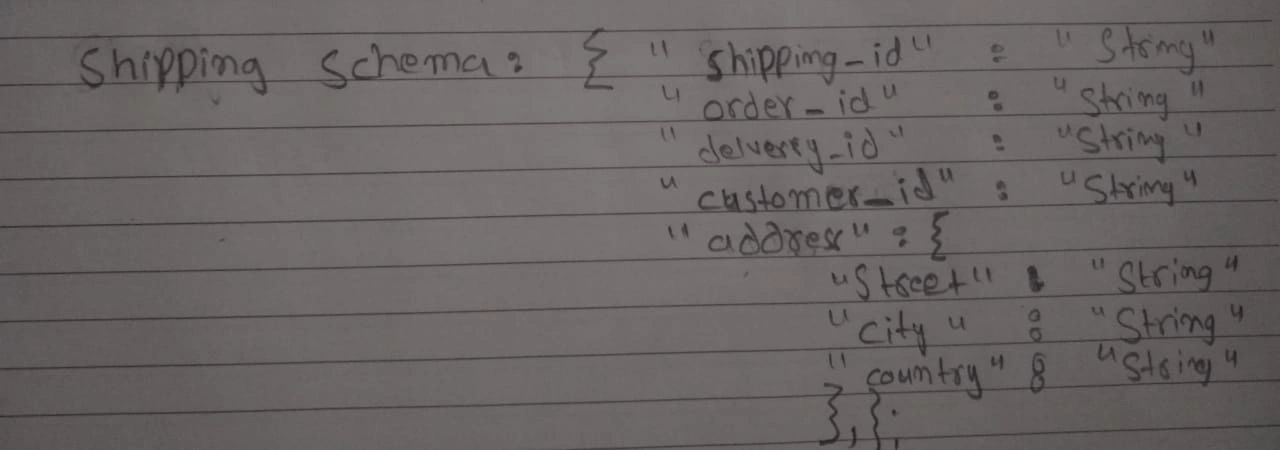 Shipping Schema: { "shipping_id" : "String"
"order_id" : "String"
"delverey_id" : "String"
"customer_id" : "String"
"address" : {
"Street" : "String"
"city" : "String"
"country" : "String"
},};